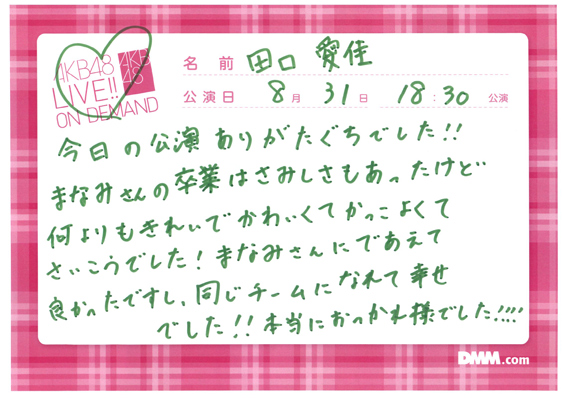 AKB48
LIVE!!
ON DEMAND
AKB
48
名前 田口 愛佳
公演日 8月 31日 18:30 公演
今日の公演ありがたぐちでした!!
まなみさんの卒業はさみしさもあったけど
何よりもきれいでかわいくてかっこよくて
さいこうでした!まなみさんにであえて
良かったですし、同じチームになれて幸せ
でした!!本当におつかれ様でした!!!!
DMM.com